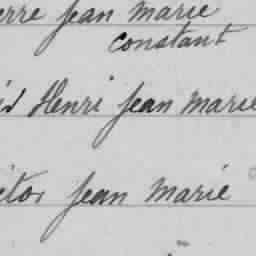 erre Jean Marie
constant
is Henri Jean Marie
ictor Jean Marie